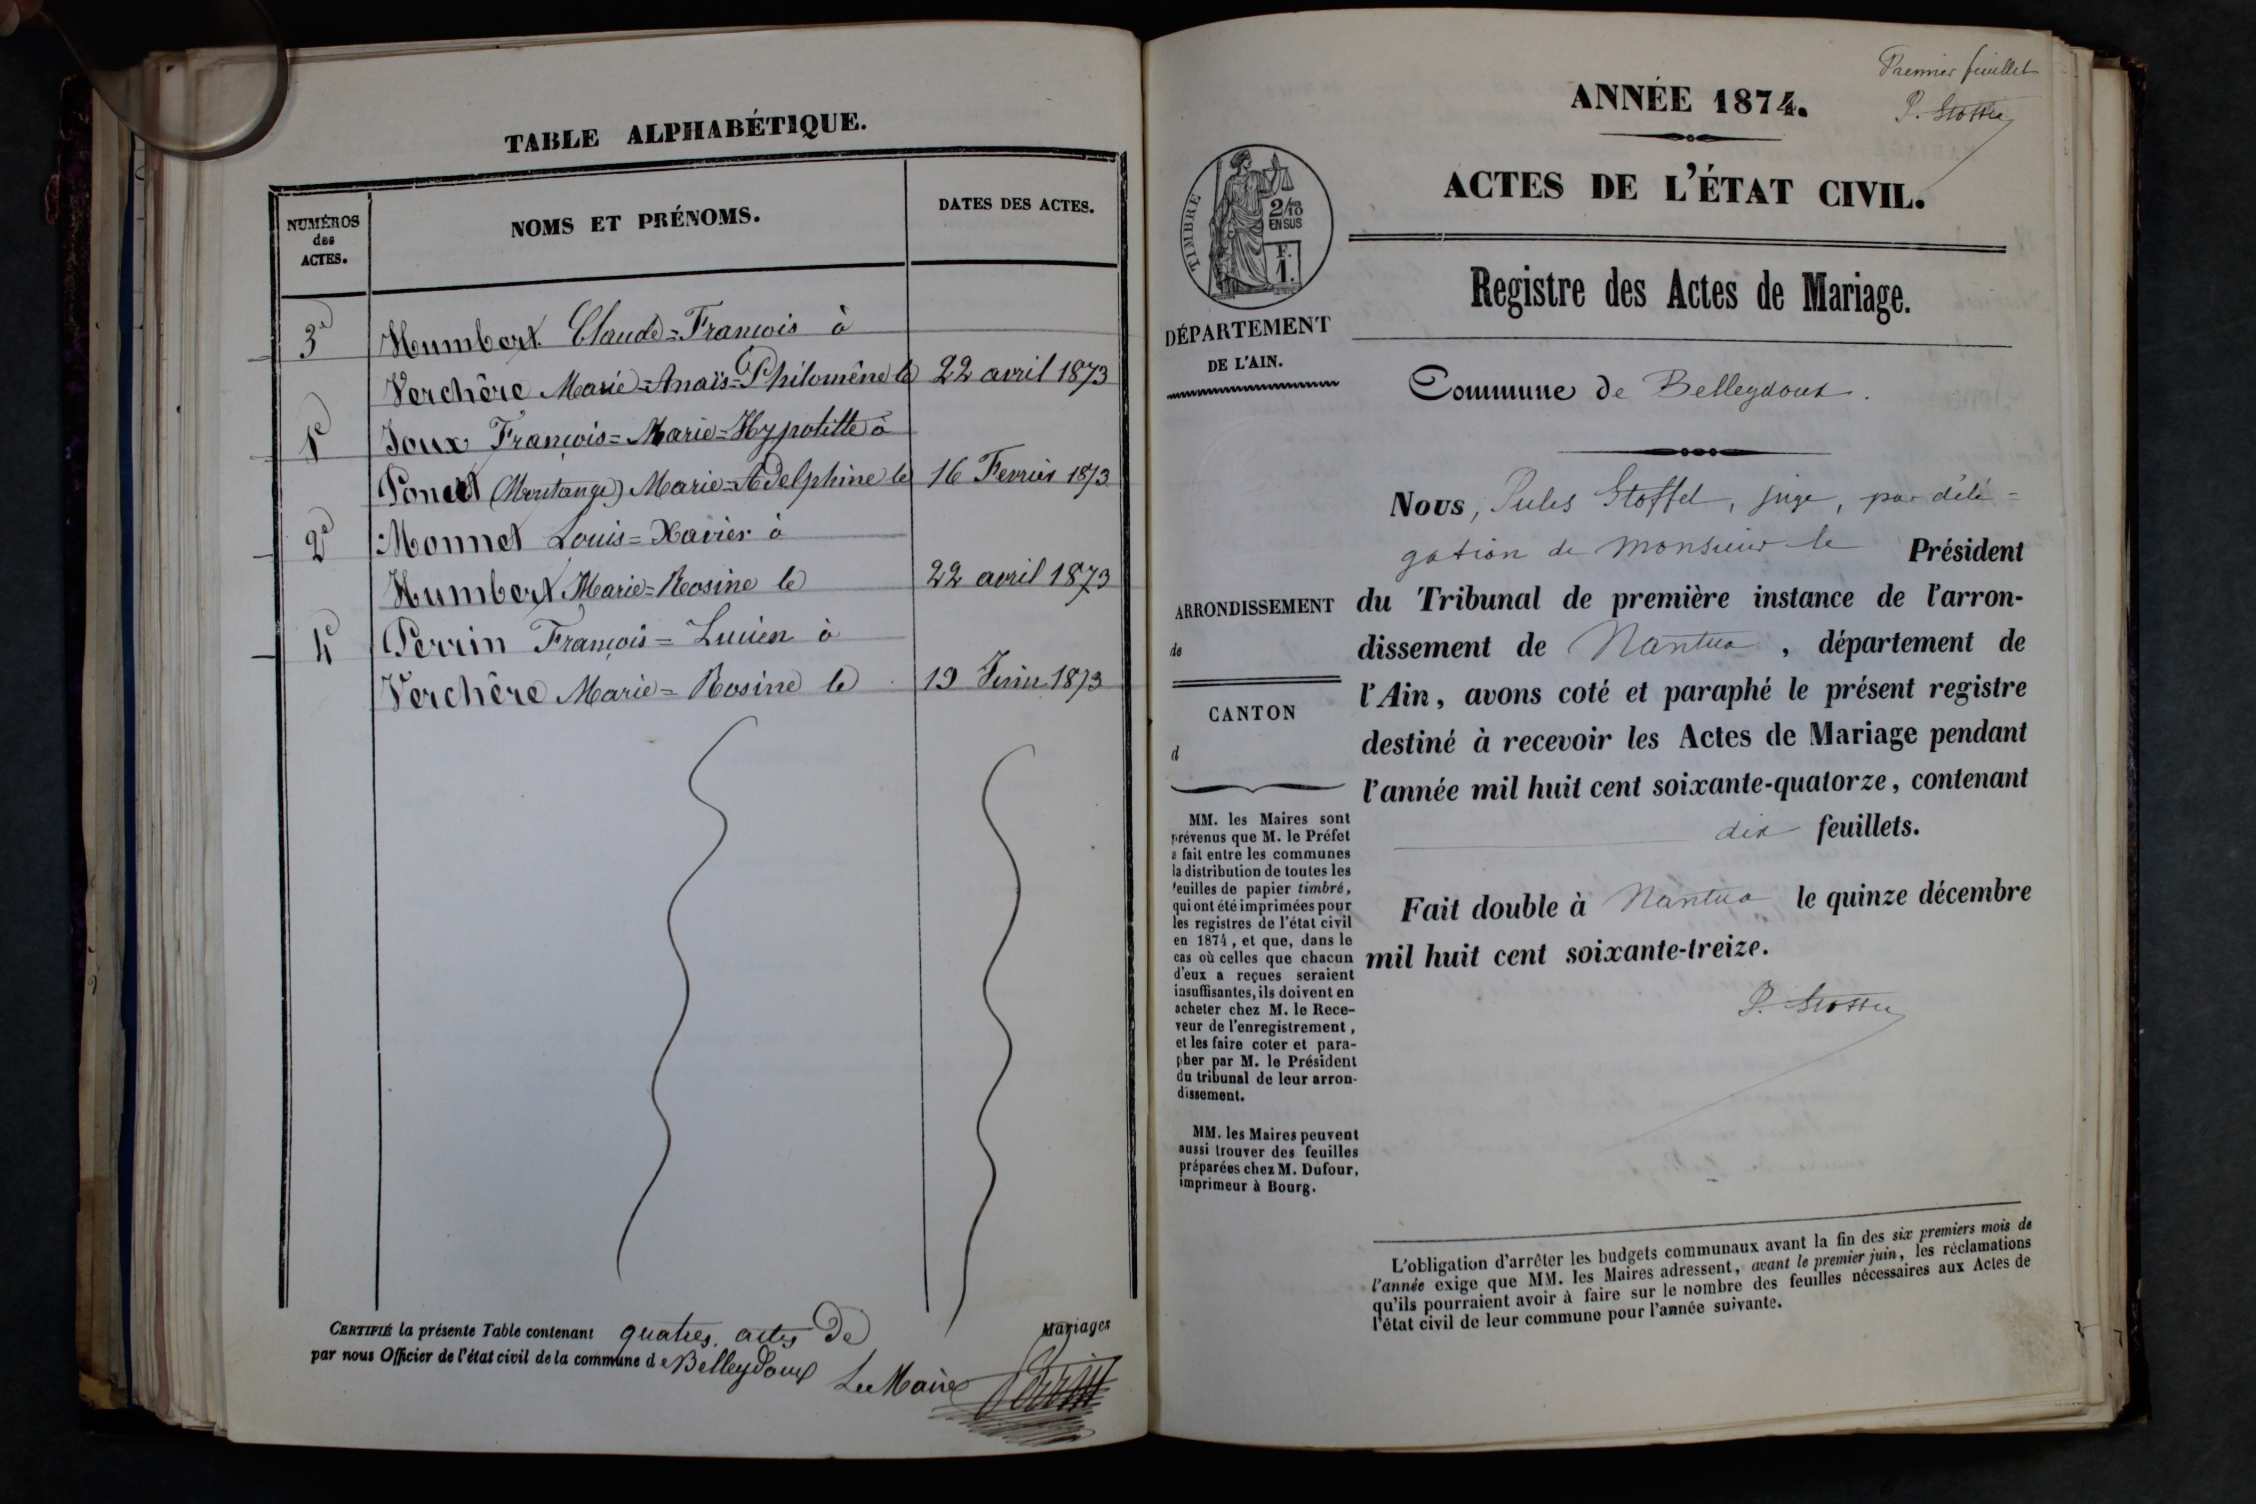 TABLE ALPHABÉTIQUE.
NUMÉROS
des
ACTES.
NOMS ET PRÉNOMS.
DATES DES ACTES.
3e Humbert Claude=François à
Verchère Marie=Anaïs=Philomène le 22 avril 1873
1e Joux François=Marie=Hypolitte à
Poncet (Moutange) Marie=Adelphine le 16 Fevrier 1873
2e Monnet Louis=Xavier à
Humbert Marie=Rosine le 22 avril 1873
4e Perrin François=Lucien à
Verchère Marie=Rosine le 19 1873
CERTIFIÉ la présente Table contenant quatres actes De Mariages
par nous Officier de l'état civil de la commune de Belleydoux
Le Maire Perrin
Premier feuillet
ANNÉE 1874.
ACTES DE L'ÉTAT CIVIL.
TIMBRE
2/10
EN SUS
F.
1.
Registre des Actes de Mariage.
DÉPARTEMENT
DE L'AIN.
Commune de Belleydoux.
Nous, Jules Stoffel, juge, par délé=
gation de monsieur le Président
du Tribunal de première instance de l'arron-
dissement de Nantua, département de
l'Ain, avons coté et paraphé le présent registre
destiné à recevoir les Actes de Mariage pendant
l'année mil huit cent soixante-quatorze, contenant
dix feuillets.
Fait double à Nantua le quinze décembre
mil huit cent soixante-treize.
J. Stoffel
ARRONDISSEMENT
de
CANTON
d
MM. les Maires sont
prévenus que M. le Préfet
a fait entre les communes
la distribution de toutes les
feuilles de papier timbré,
qui ont été imprimées pour
les registres de l'état civil
en 1874, et que, dans le
cas où celles que chacun
d'eux a reçues seraient
insuffisantes, ils doivent en
acheter chez M. le Rece-
veur de l'enregistrement,
et les faire coter et para-
pher par M. le Président
du tribunal de leur arron-
dissement.
MM. les Maires peuvent
aussi trouver des feuilles
préparées chez M. Dufour,
imprimeur à Bourg.
L'obligation d'arrêter les budgets communaux avant la fin des six premiers mois de
l'année exige que MM. les Maires adressent, avant le premier juin, les réclamations
qu'ils pourraient avoir à faire sur le nombre des feuilles nécessaires aux Actes de
l'état civil de leur commune pour l'année suivante.